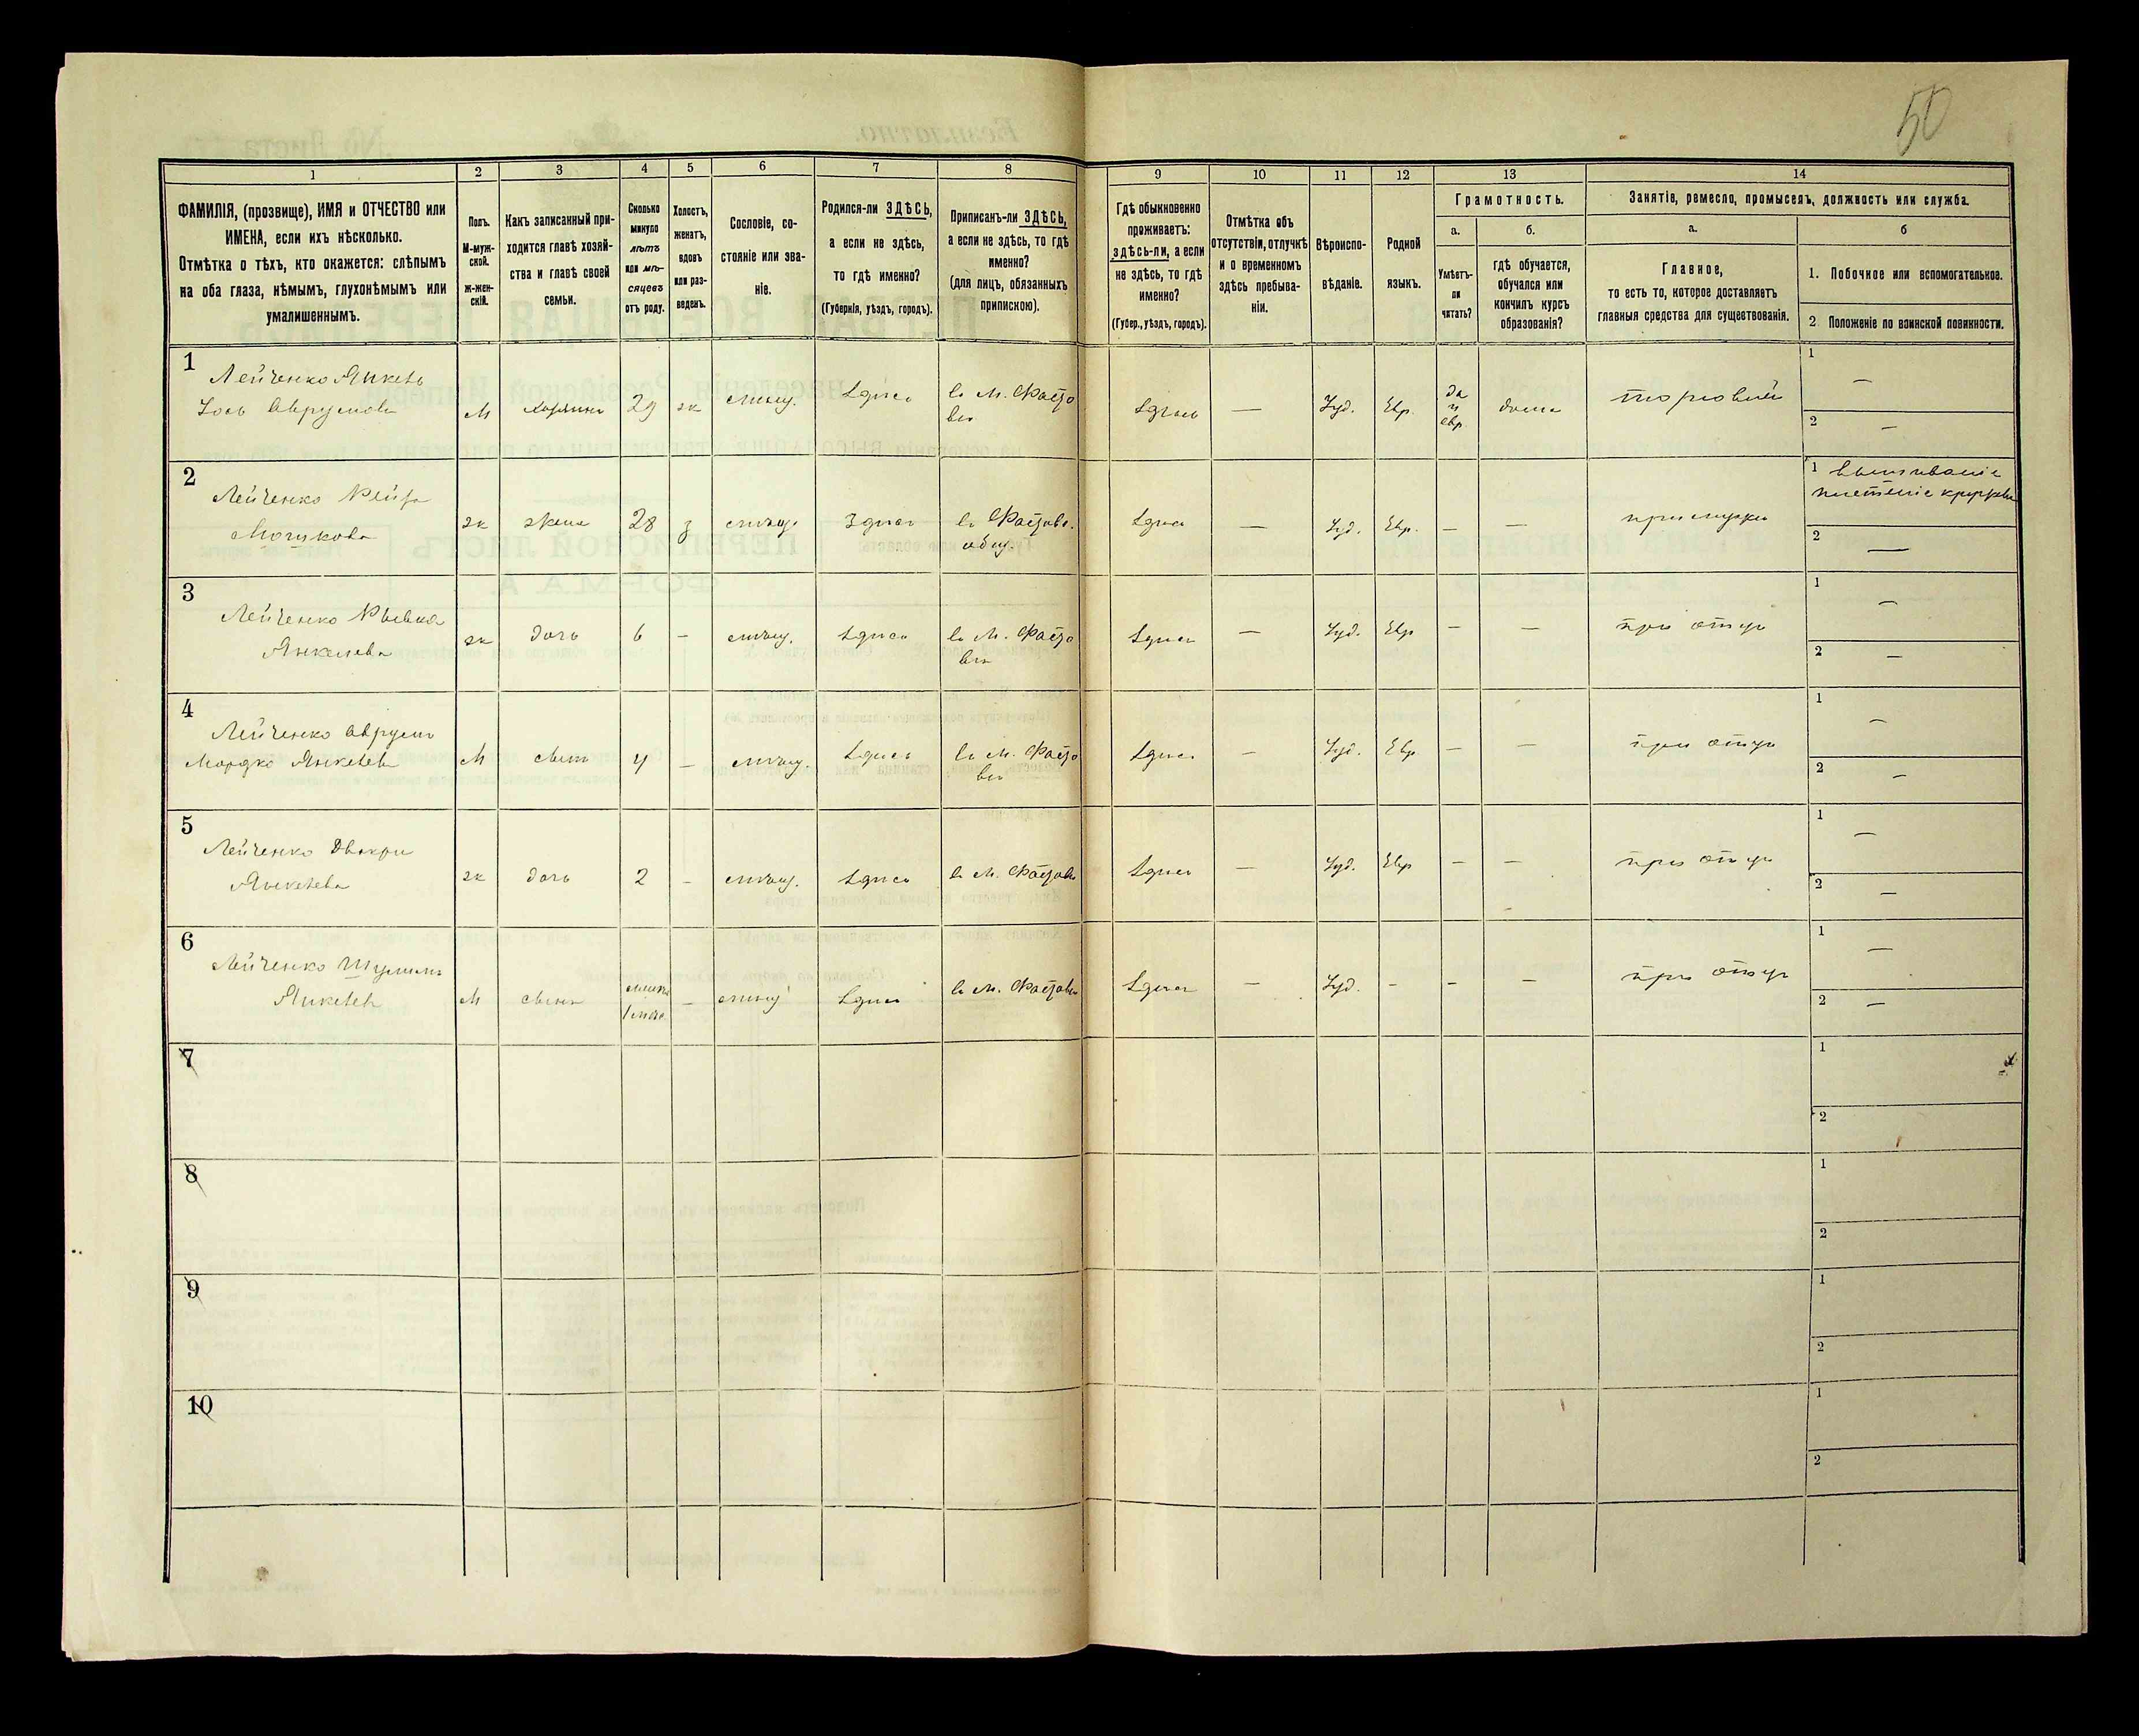 50
1
2
3
4
5
6
7
8
9
10
11
12
13
14
ФАМИЛІЯ, (прозвище), ИМЯ и ОТЧЕСТВО или
ИМЕНА, если ихъ нѣсколько.
Отмѣтка о тѣхъ, кто окажется: слѣпымъ
на оба глаза, нѣмымъ, глухонѣмымъ или
умалишеннымъ.
Полъ.
М-муж-
ской.
ж-жен-
скій.
Какъ записанный при-
ходится главѣ хозяй-
ства и главѣ своей
семьи.
Сколько
минуло
лѣтъ
или мѣ-
сяцевъ
отъ роду.
Холостъ,
женатъ,
вдовъ
или раз-
веденъ.
Сословіе, со-
стояніе или зва-
ніе.
Родился-ли ЗДѢСЬ,
а если не здѣсь,
то гдѣ именно?
(Губернія, уѣздъ, городъ).
Приписанъ-ли ЗДѢСЬ,
а если не здѣсь, то гдѣ
именно?
(для лицъ, обязанныхъ
припискою).
Гдѣ обыкновенно
проживаетъ:
здѣсь-ли, а если
не здѣсь, то гдѣ
именно?
(Губер., уѣздъ, городъ).
Отмѣтка объ
отсутствіи, отлучкѣ
и о временномъ
здѣсь пребыва-
ніи.
Вѣроиспо-
вѣданіе.
Родной
языкъ.
Грамотность.
а.
Умѣетъ-
ли
читать?
б.
гдѣ обучается,
обучался или
кончилъ курсъ
образованія?
Занятіе, ремесло, промыселъ, должность или служба.
а.
Главное,
то есть то, которое доставляетъ
главныя средства для существованія.
б
1. Побочное или вспомогательное.
2. Положеніе по воинской повинности.
1
Лейченко Янкель
Іось Аврумовъ
М
хозяинъ
29
ж
мѣщ.
здѣсь
въ М. Фастовѣ
здѣсь
—
Іуд.
Евр.
да
и
евр.
дома
торговый
1
—
2
—
2
Лейченко Рейза
Мошкова
ж
жена
28
з
мѣщ.
здѣсь
въ Фастовс.
общ.
здѣсь
—
Іуд.
Евр.
—
—
при мужѣ
1 вышиваніе
плетеніе кружевъ
2
—
3
Лейченко Рывка
Янкелева
ж
дочь
6
-
мѣщ.
здѣсь
въ М. Фасто
вѣ
здѣсь
—
Іуд.
Евр
—
—
при отцѣ
1
—
2
—
4
Лейченко Аврумъ
Мордко Янкелевъ
М
сынъ
4
-
мѣщ.
здѣсь
въ М. Фасто
вѣ
здѣсь
—
Іуд.
Евр
—
—
при отцѣ
1
—
2
—
5
Лейченко
Янкелева
ж
дочь
2
-
мѣщ.
здѣсь
въ М. Фастовѣ
здѣсь
—
Іуд.
Евр
—
—
при отцѣ
1
—
2
—
6
Лейченко Шулимъ
Янкелевъ
М
сынъ
-
мѣщ
здѣсь
въ М. Фастовѣ
здѣсь
—
Іуд.
-
-
—
при отцѣ
1
—
2
—
7
1
2
8
1
2
9
1
2
10
1
2